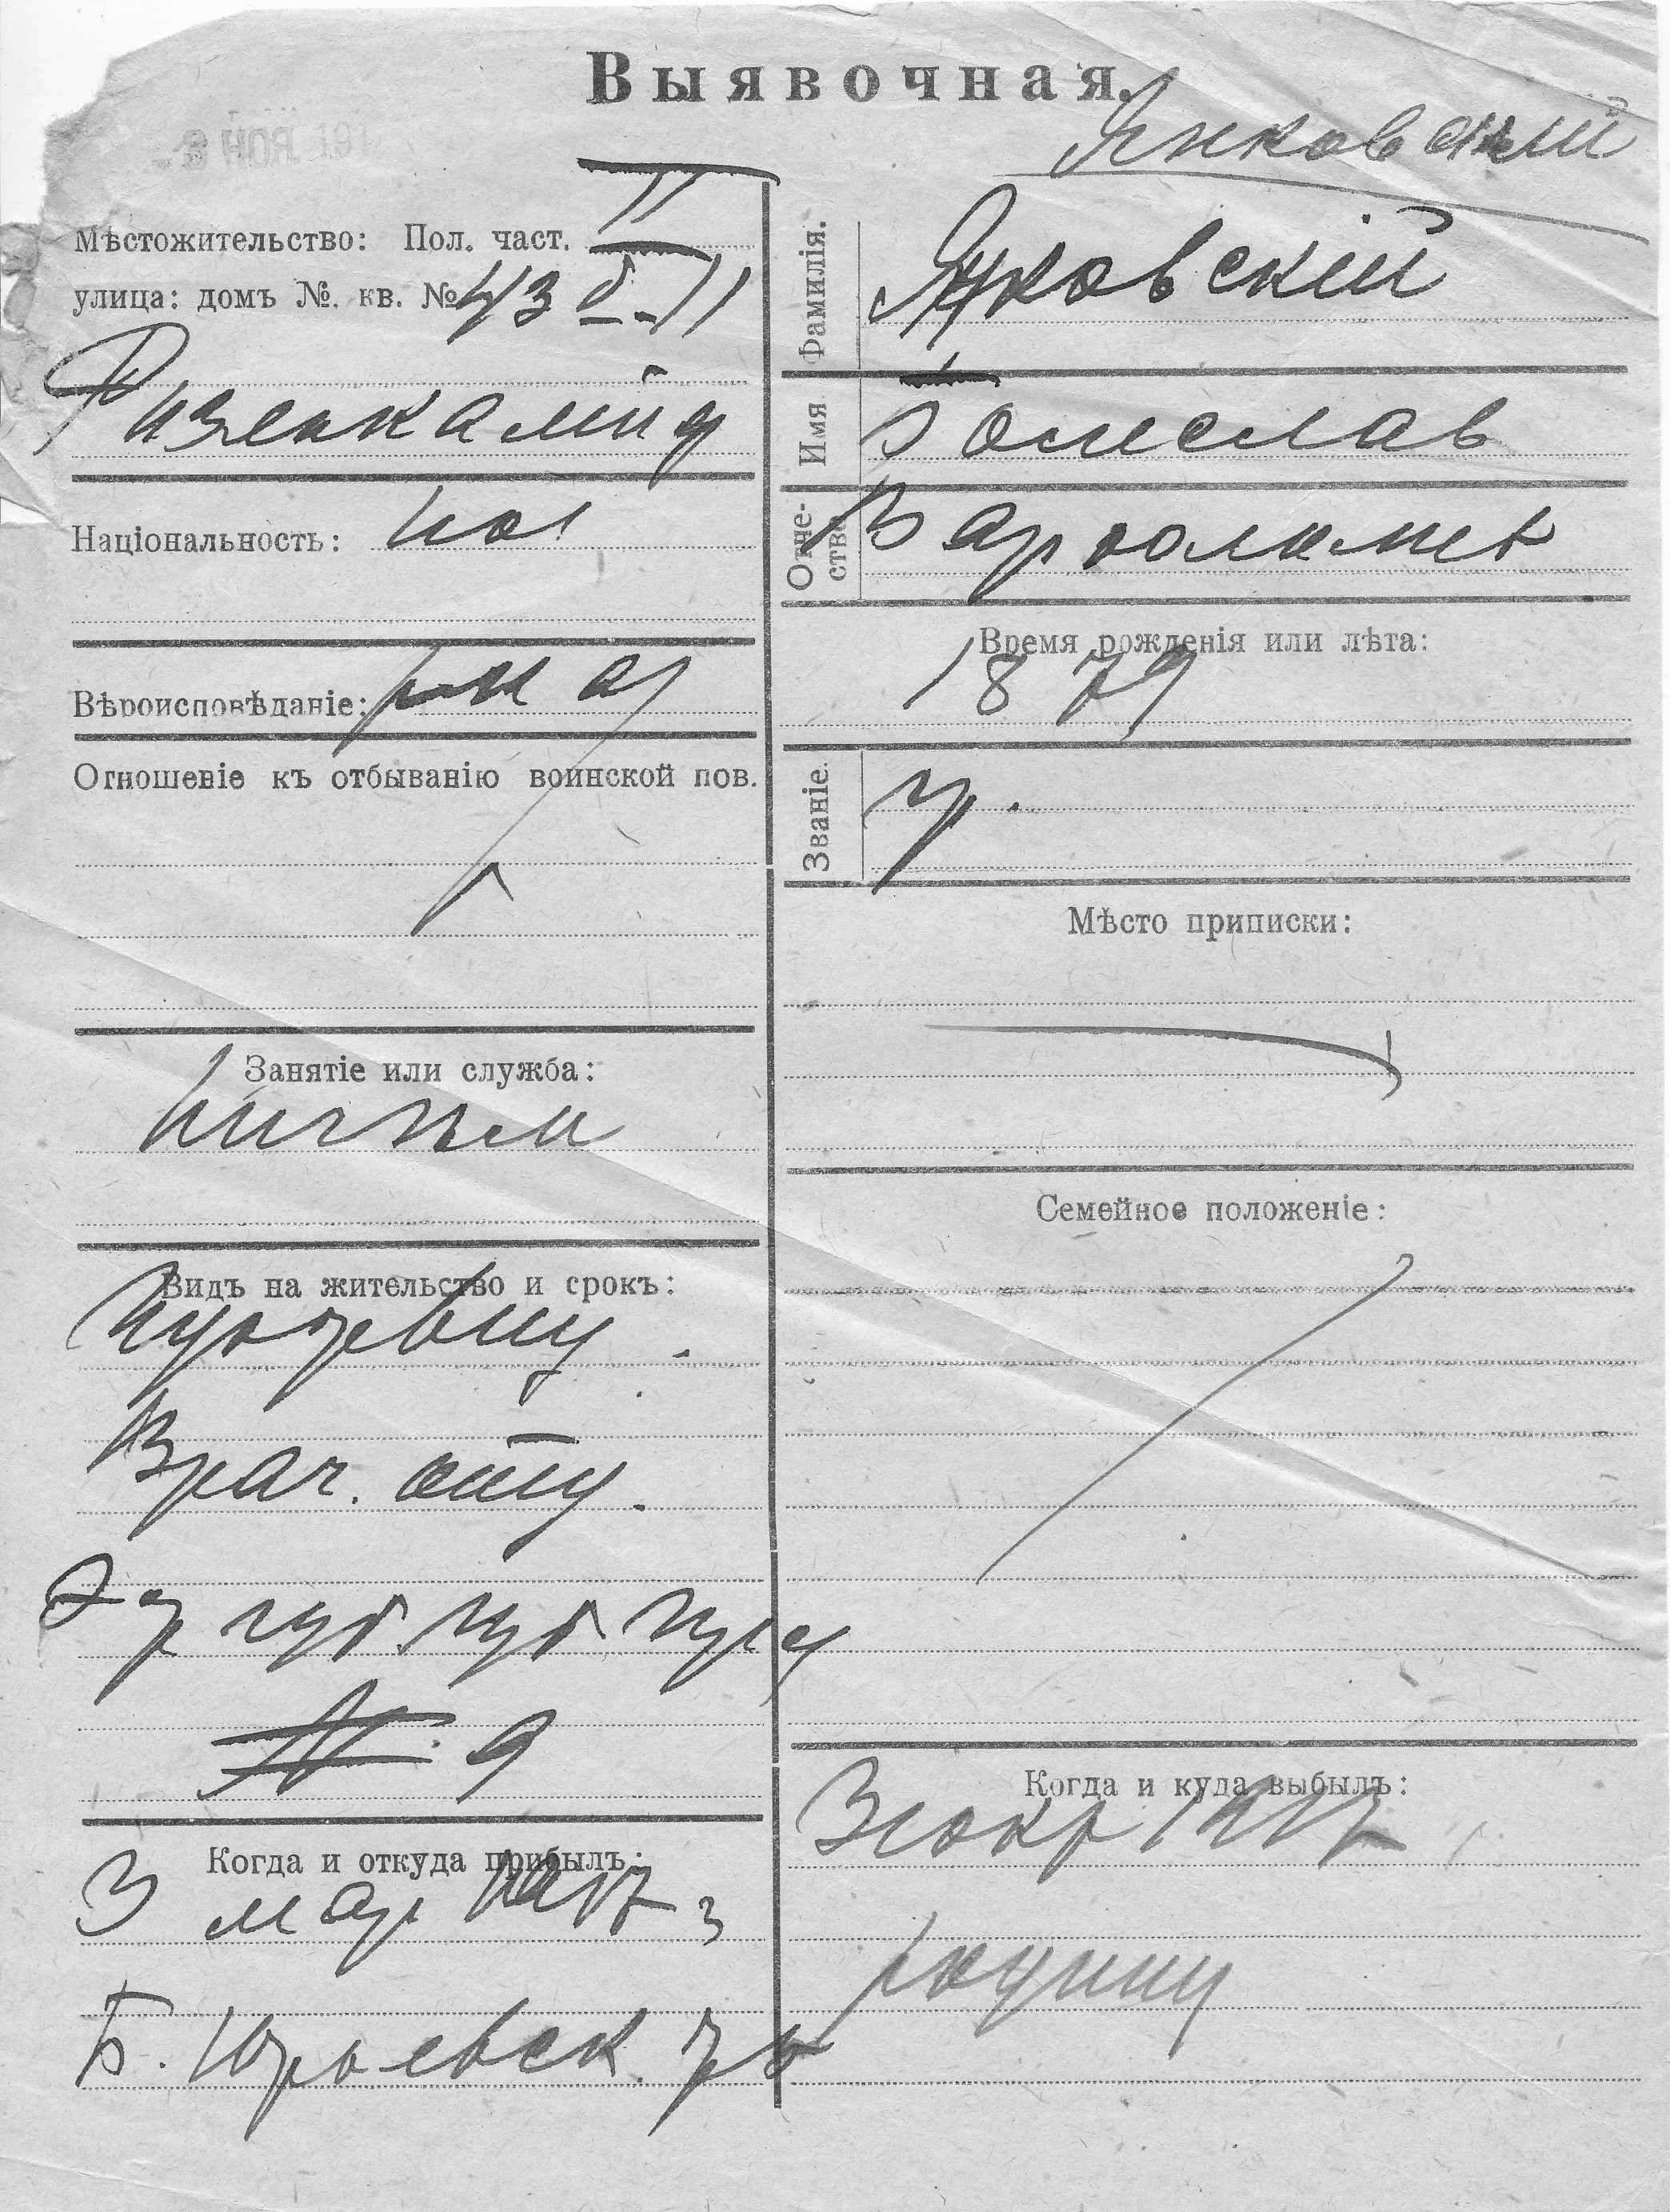 Выявочная.
3 НОЯ. 191
Янковский
Мѣстожительство: Пол. част. II
улица: домъ №. кв. № 43 б - 11
Ризенкампф
Національность: пол
Вѣроисповѣданіе:
Отношеніе къ отбыванію воинской пов.
Занятіе или служба:
Видъ на жительство и срокъ:
Врач.
№ 9
Когда и откуда прибылъ:
3 мар 1917 з
Б. Юрьевск.
Фамилія.
Яковскій
Имя
Болеслав
Отчество
Варфоломе
Время рожденія или лѣта:
1879
Званіе.
Мѣсто приписки:
Семейное положеніе:
Когда и куда выбылъ:
3 1917
родину